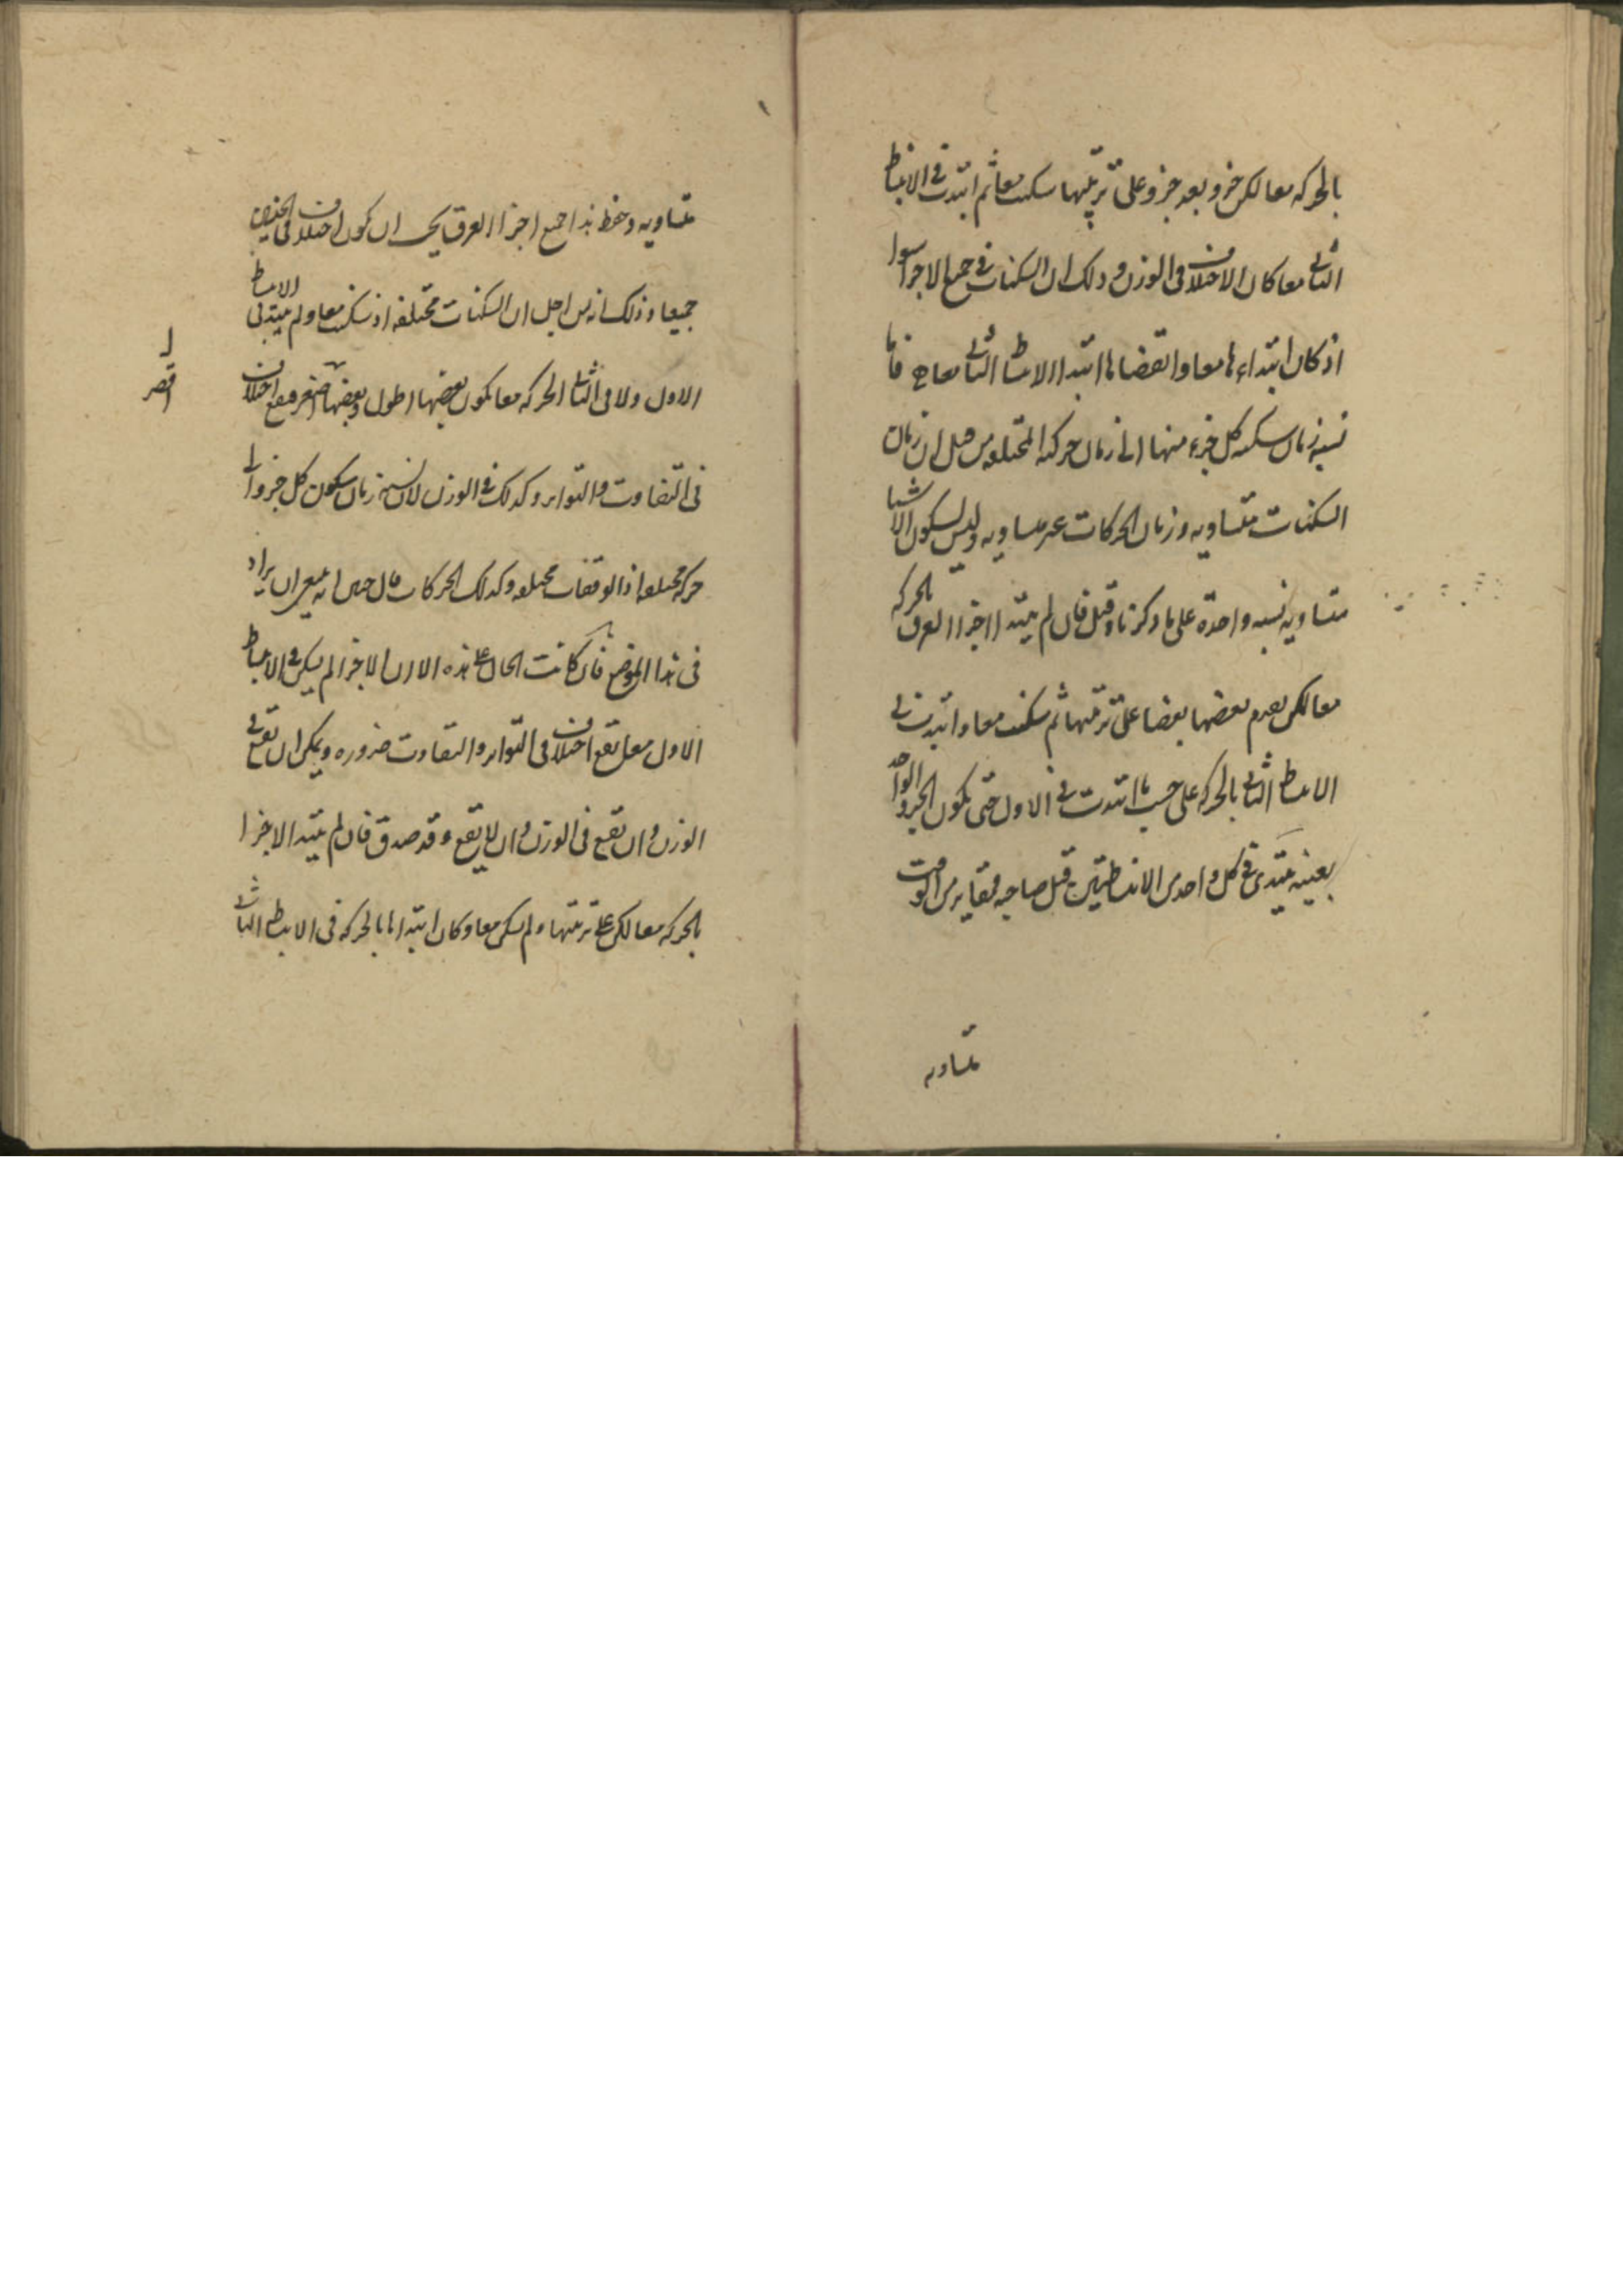 بالحركه معا لكن جزو بعد جزو على ترتيبها سكنت معا ثم ابتدت فى الانبساط
الثانى معا كان الاختلاف فى الوزن و ذلك ان السكنات فى جميع الاجزا سوا
اذ كان ابتداءها معا و انقضاها ابتدا الانبساط الثانى معا فاما
نسبه زمان سكنه كل جزء منها الى زمان حركه المختلفه من قبل ان زمان
السكنات متساويه و زمان الحركات غير متساويه و ليس لسكون الاشيا
متساويه نسبه واحدة على ما ذكرنا و قيل فان لم يبتد اجزا العرق بالحركه
معا لكن يقدم بعضها بعضا على ترتيبها ثم سكنت معا و ابتدت فى
الانبساط الثانى بالحركه على حسب ما ابتدت فى الاول حتى يكون الجزو الواحد
بعينه يبتدى فى كل واحد من الانبساطين قبل صاحبه بمقادير من الوقت
متساويه
متساويه و حفظ هذا جميع اجزا العرق يجب ان يكون اختلاف فى الجنسين
جميعا و ذلك انه من اجل ان السكنات مختلفه اذ سكنت معا و لم يبتد فى الانبساط
الاول و لا فى الثانى الحركه معا يكون بعضها اطول و بعضها اصغر فيقع اختلاف
اقصر
فى التفاوت و التواتر و كذلك فى الوزن لان نسبه زمان سكون كل جزو الى
حركه مختلفه اذ الوقفات مختلفه و كذلك الحركات قال حنين انه ينبغى ان يزاد
فى هذا الموضع فان كانت الحال على هذه الا ان الاجزا لم يسكن فى الانبساط
الاول معا يقع اختلاف فى التواتر و التفاوت ضروره و يمكن ان يقع فى
الوزن و ان يقع فى الوزن و ان لا يقع و قد صدق فان لم يبتد الاجزا
بالحركه معا لكن على ترتيبها و لم يسكن معا و كان ابتداها بالحركه فى الانبساط الثانى